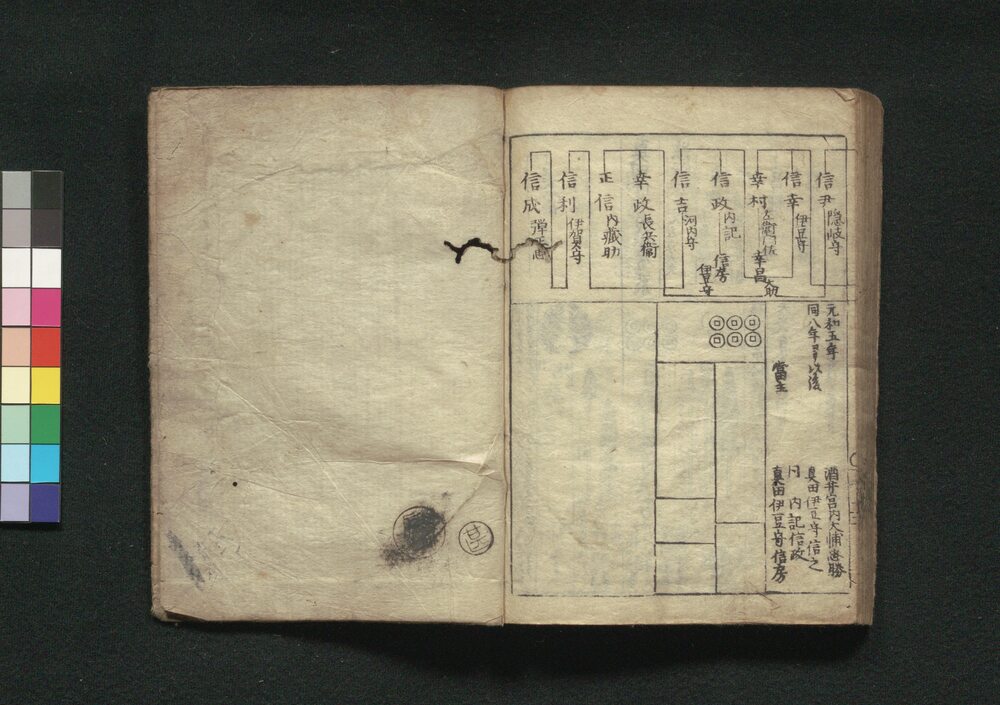 信尹 隠岐守
信幸 伊豆守
幸村 左衛門佐 幸昌 大助
信政 内記 信房 伊豆守
信吉 河内守
幸政 長兵衛
正信 内蔵助
信利 伊賀守
信成
元和五年 酒井宮内大輔忠勝
同八年 以後 真田伊豆守信之
同 内記信政
當主 真田伊豆守信房